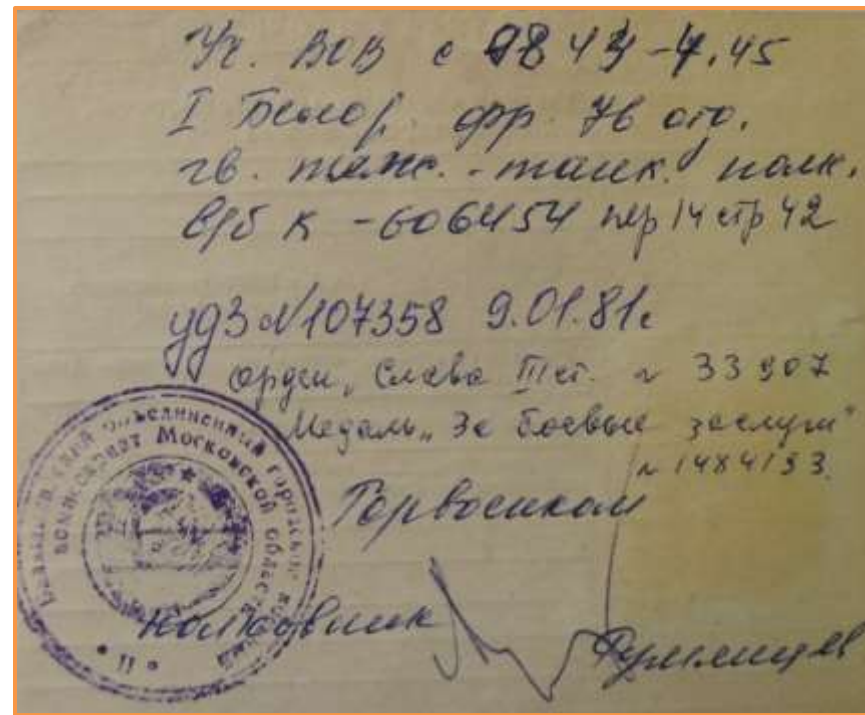 Уч. ВОВ с 9843-4.45
I Белор. фр. 76 отд.
гв. тяж.-танк. полк.
в/б К-606454 пер 14 стр 42
удЗ №107358 9.01.81г
орден „Слава III ст. № 33907
Медаль „За боевые заслуги"
№ 1484133.
Горвоенком
полковник
объединенный городской военный комиссариат Московской области
* 11 *